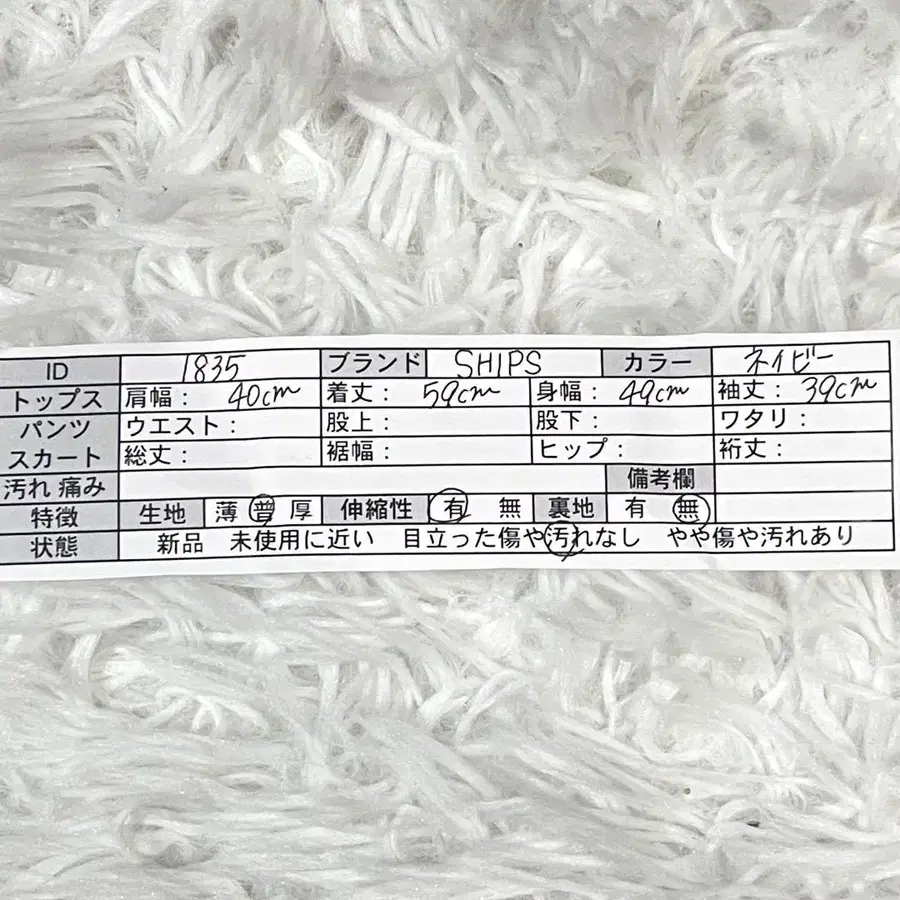 ID 1835 ブランド SHIPS カラー ネイビー
トップス 肩幅： 40cm 着丈： 59cm 身幅： 49cm 袖丈： 39cm
パンツ ウエスト： 股上： 股下： ワタリ：
スカート 総丈： 裾幅： ヒップ： 裄丈：
汚れ 痛み 備考欄
特徴 生地 薄 普 厚 伸縮性 有 無 裏地 有 無
状態 新品 未使用に近い 目立った傷や汚れなし やや傷や汚れあり